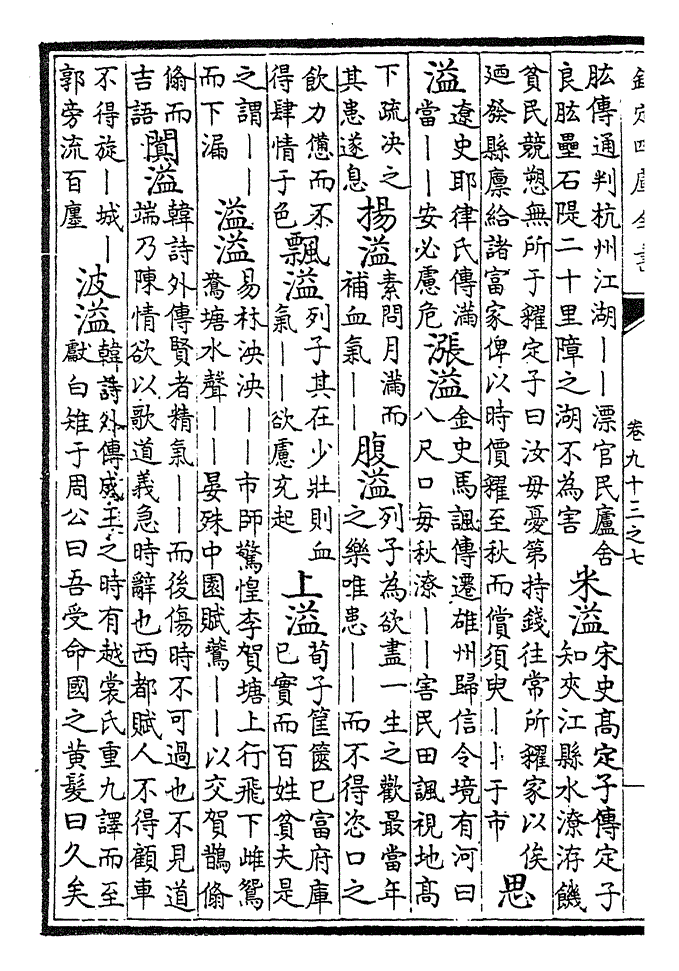 欽定四庫全書
卷九十三之七
肱傳通判杭州江湖丨丨漂官民廬舍
良肱壘石隄二十里障之湖不為害
米溢
宋史髙定子傳定子
知夾江縣水潦洊饑
貧民競愬無所于糴定子曰汝毋憂第持錢往常所糴家以俟
廼發縣廪給諸富家俾以時價糶至秋而償須臾丨丨于市
思
溢
遼史耶律氏傳滿
當丨丨安必慮危
漲溢
金史馬諷傳遷雄州歸信令境有河曰
八尺口每秋潦丨丨害民田諷視地髙
下疏决之
其患遂息
揚溢
素問月滿而
補血氣丨丨
腹溢
列子為欲盡一生之歡最當年
之樂唯患丨丨而不得恣口之
飲力憊而不
得肆情于色
飄溢
列子其在少壯則血
氣丨丨欲慮充起
上溢
荀子筐篋巳富府庫
巳實而百姓貧夫是
之謂丨丨
而下漏
溢溢
易林泱泱丨丨市師驚惶李賀塘上行飛下雌鴛
鴦塘水聲丨丨晏殊中園賦鶩丨丨以交賀鵲翛
翛而
吉語
闐溢
韓詩外傳賢者精氣丨丨而後傷時不可過也不見道
端乃陳情欲以歌道義急時辭也西都賦人不得顧車
不得旋丨城丨
郭旁流百廛
波溢
韓詩外傳成王之時有越裳氏重九譯而至
獻白雉于周公曰吾受命國之黄髮曰久矣